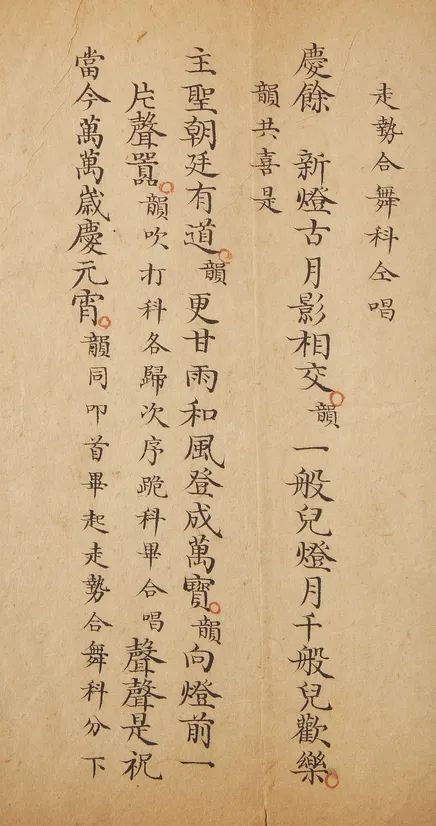 走勢合舞科仝唱
慶餘 新燈古月影相交。韻 一般兒燈月千般兒歡樂。
韻共喜是
主聖朝廷有道。韻 更甘雨和風登成萬寶。韻向燈前一
片聲囂。韻吹打科各歸次序跪科畢合唱 聲聲是祝
當今萬萬歲慶元宵。韻同叩首畢起走勢合舞科分下